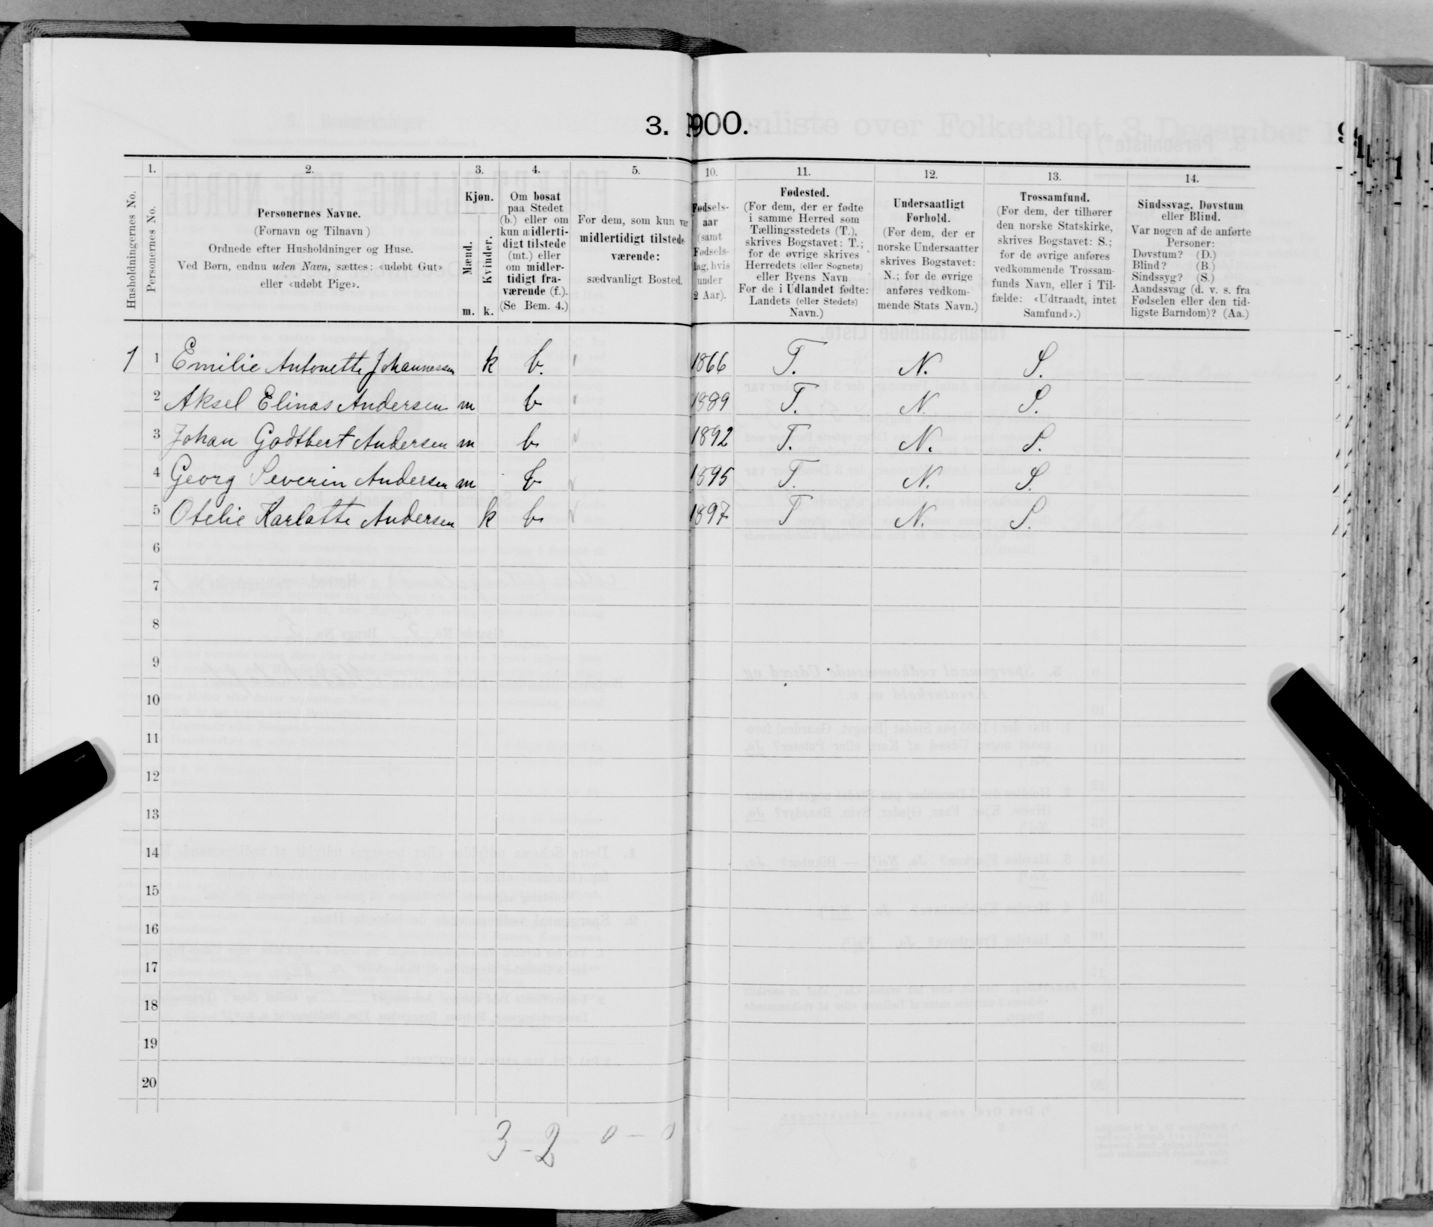 3. 1900.
1. 2. 3. 4. 5. 10. 11. 12. 13. 14.
Husholdningernes No.
Personernes No.
Personernes Navne.
(Fornavn og Tilnavn)
Ordnede efter Husholdninger og Huse.
Ved Børn, endnu uden Navn, sættes: «udøbt Gut»
eller «udøbt Pige».
Kjøn.
Mænd.
Kvinder.
m. k.
Om bosat
paa Stedet
(b.) eller om
kun midlerti-
digt tilstede
(mt.) eller
om midler-
tidigt fra-
værende (f.).
(Se Bem. 4.)
For dem, som kun var
midlertidigt tilstede-
værende:
sædvanligt Bosted.
Fødsels-
aar
(samt
Fødsels-
dag, hvis
under
2 Aar).
Fødested.
(For dem, der er fødte
i samme Herred som
Tællingsstedets (T.),
skrives Bogstavet: T.;
for de øvrige skrives
Herredets (eller Sognets)
eller Byens Navn
For de i Udlandet fødte:
Landets (eller Stedets)
Navn.)
Undersaatligt
Forhold.
(For dem, der er
norske Undersaatter
skrives Bogstavet:
N.; for de øvrige
anføres vedkom-
mende Stats Navn.)
Trossamfund.
(For dem, der tilhører
den norske Statskirke,
skrives Bogstavet: S.;
for de øvrige anføres
vedkommende Trossam-
funds Navn, eller i Til-
fælde: «Udtraadt, intet
Samfund».)
Sindssvag, Døvstum
eller Blind.
Var nogen af de anførte
Personer:
Døvstum? (D.)
Blind? (B.)
Sindssyg? (S.)
Aandssvag (d. v. s. fra
Fødselen eller den tid-
ligste Barndom)? (Aa.)
1 1 Emilie Antonette Johannessen k b. 1866 T. N. S.
2 Aksel Elinas Andersen m b 1889 T. N. S.
3 Johan Godtbert Andersen m b 1892 T. N. S.
4 Georg Severin Andersen m b 1895 T. N. S.
5 Otelie Karlatte Andersen k b 1897 T N. S.
6
7
8
9
10
11
12
13
14
15
16
17
18
19
20
3-2 0-0